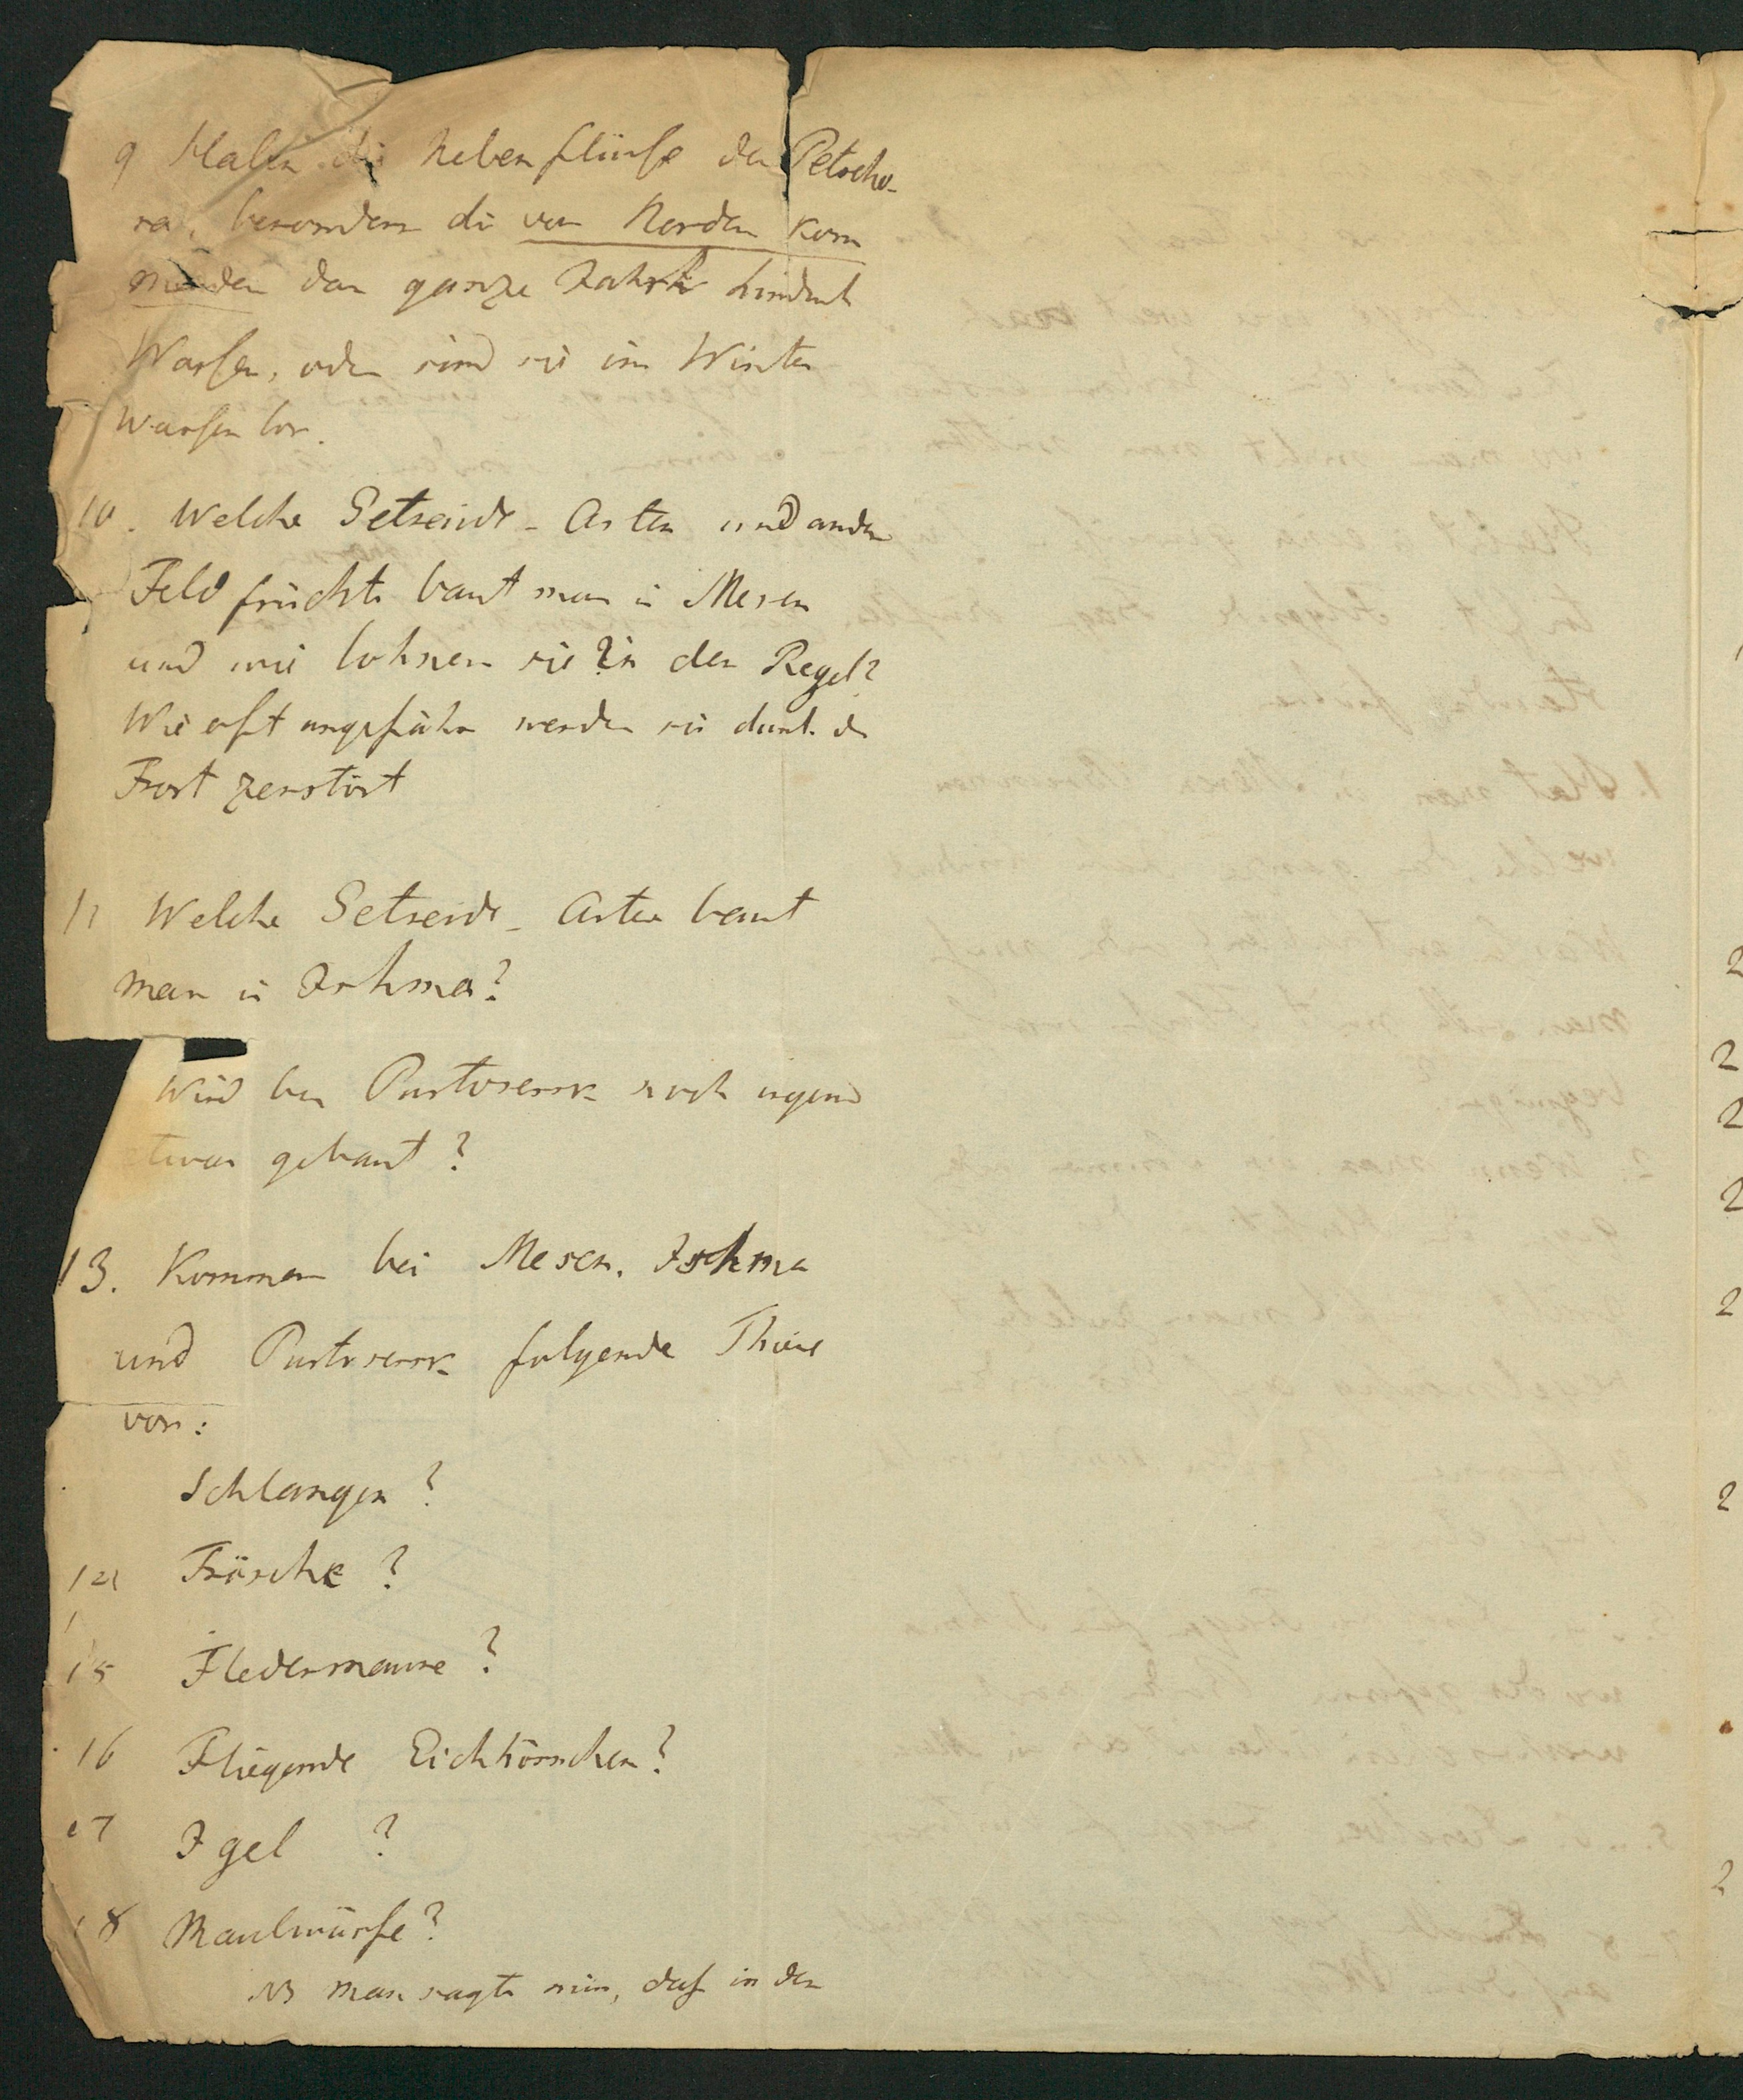 9 Haben die Nebenflüsse der Petscho-
ra, besonders die von Norden kom
menden das ganze Jahr hindurch
Wasser, oder sind sie im Winter
wasserlos.
10. Welche Getreide-Arten und andere
Feldfrüchte baut man in Mesen
und wie lohnen sie in der Regel?
Wie oft ungefähr werden sie durch d
Frost zerstört
11 Welche Getreide-Arten baut
man in Ishma?
Wird bei Pustosersk noch irgend
etwas gebaut?
13. Kommen bei Mesen, Ishma
und Pustosersk folgende Thiere
vor:
Schlangen?
14 Frösche?
15 Fledermause?
16 Fliegende Eichhörnchen?
17 Igel ?
18 Maulwürfe?
NB Man sagte mir, daß in den
2
2
2
2
2
2
2